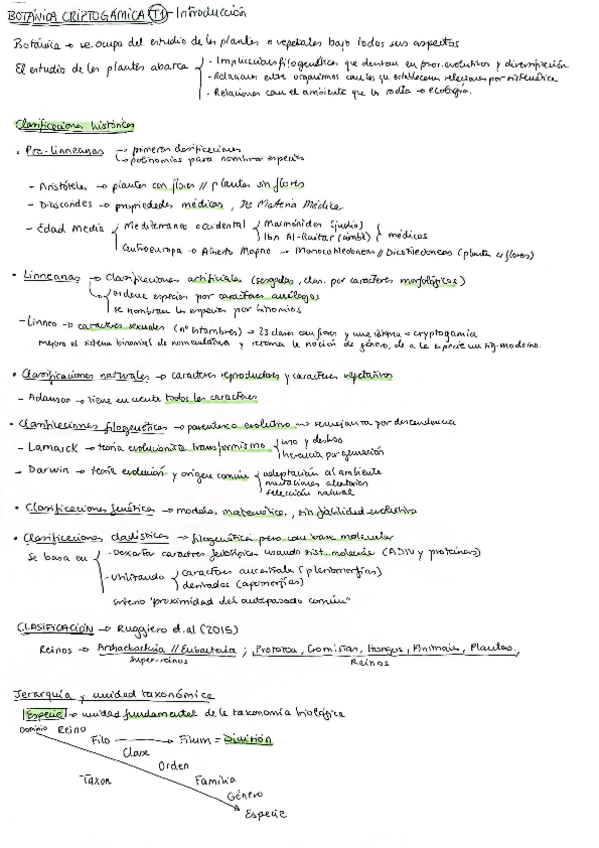 BOTÁNICA CRIPTOGÁMICA (T1) - Introducción
Botánica → se ocupa del estudio de las plantas o vegetales bajo todos sus aspectos
El estudio de las plantas abarca
- Implicaciones filogenéticas que derivan en proc. evolutivos y diversificación
- Relaciones entre organismos con los que establecen relaciones por sistemática
- Relaciones con el ambiente que los rodea → ecología.
Clasificaciones históricas
• Pre-linneanas → primeras clasificaciones
→ polinomios para nombrar especies
- Aristóteles → plantas con flores // plantas sin flores
- Dioscorides → propiedades médicas, De Materia Médica
- Edad Media
Mediterraneo occidental
Maimónides (judio)
Ibn Al-Baitar (árabe)
médicos
Centroeuropa → Alberto Magno → Monocotiledoneas // Dicotiledoneas (planta c/ flores)
• Linneanas → Clasificaciones artificiales (sesgadas, clas. por caracteres morfológicos)
→ ordena especies por caracteres análogos
se nombran las especies por binomios
- Linneo → caracteres sexuales (nº estambres) → 23 clases con flores y una última = cryptogamia
mejora el sistema binomial de nomenclatura y retoma la noción de género, da a la especie un sig. moderno.
• Clasificaciones naturales → caracteres reproductores y caracteres vegetativos
- Adanson → tiene en cuenta todos los caracteres
• Clasificaciones filogenéticas → parentesco evolutivo → semejanza por descendencia
- Lamarck → teoría evolucionista transformismo
uso y desuso
herencia por generación
- Darwin → teoría evolución y origen común
adaptación al ambiente
mutaciones aleatorias
selección natural
• Clasificaciones fenéticas → modelos matemáticos, sin fiabilidad evolutiva
• Clasificaciones cladísticas → filogenética pero con base molecular
Se basa en
- Descarta caracteres fenotípicos usando sist. molecular (ADN y proteínas)
- Utilizando
caracteres ancestrales (plesiomorfías)
derivados (apomorfías)
criterio "proximidad del antepasado común"
CLASIFICACIÓN → Ruggiero et. al (2015)
Reinos → Archaebacteria // Eubacteria ; Protozoa, Cromistas, Hongos, Animales, Plantas.
super-reinos
Reinos
Jerarquía y unidad taxonómica
Especie → unidad fundamental de la taxonomía biológica
Dominio
Reino
Filo → Filum = División
Clase
Orden
Taxon
Familia
Género
Especie